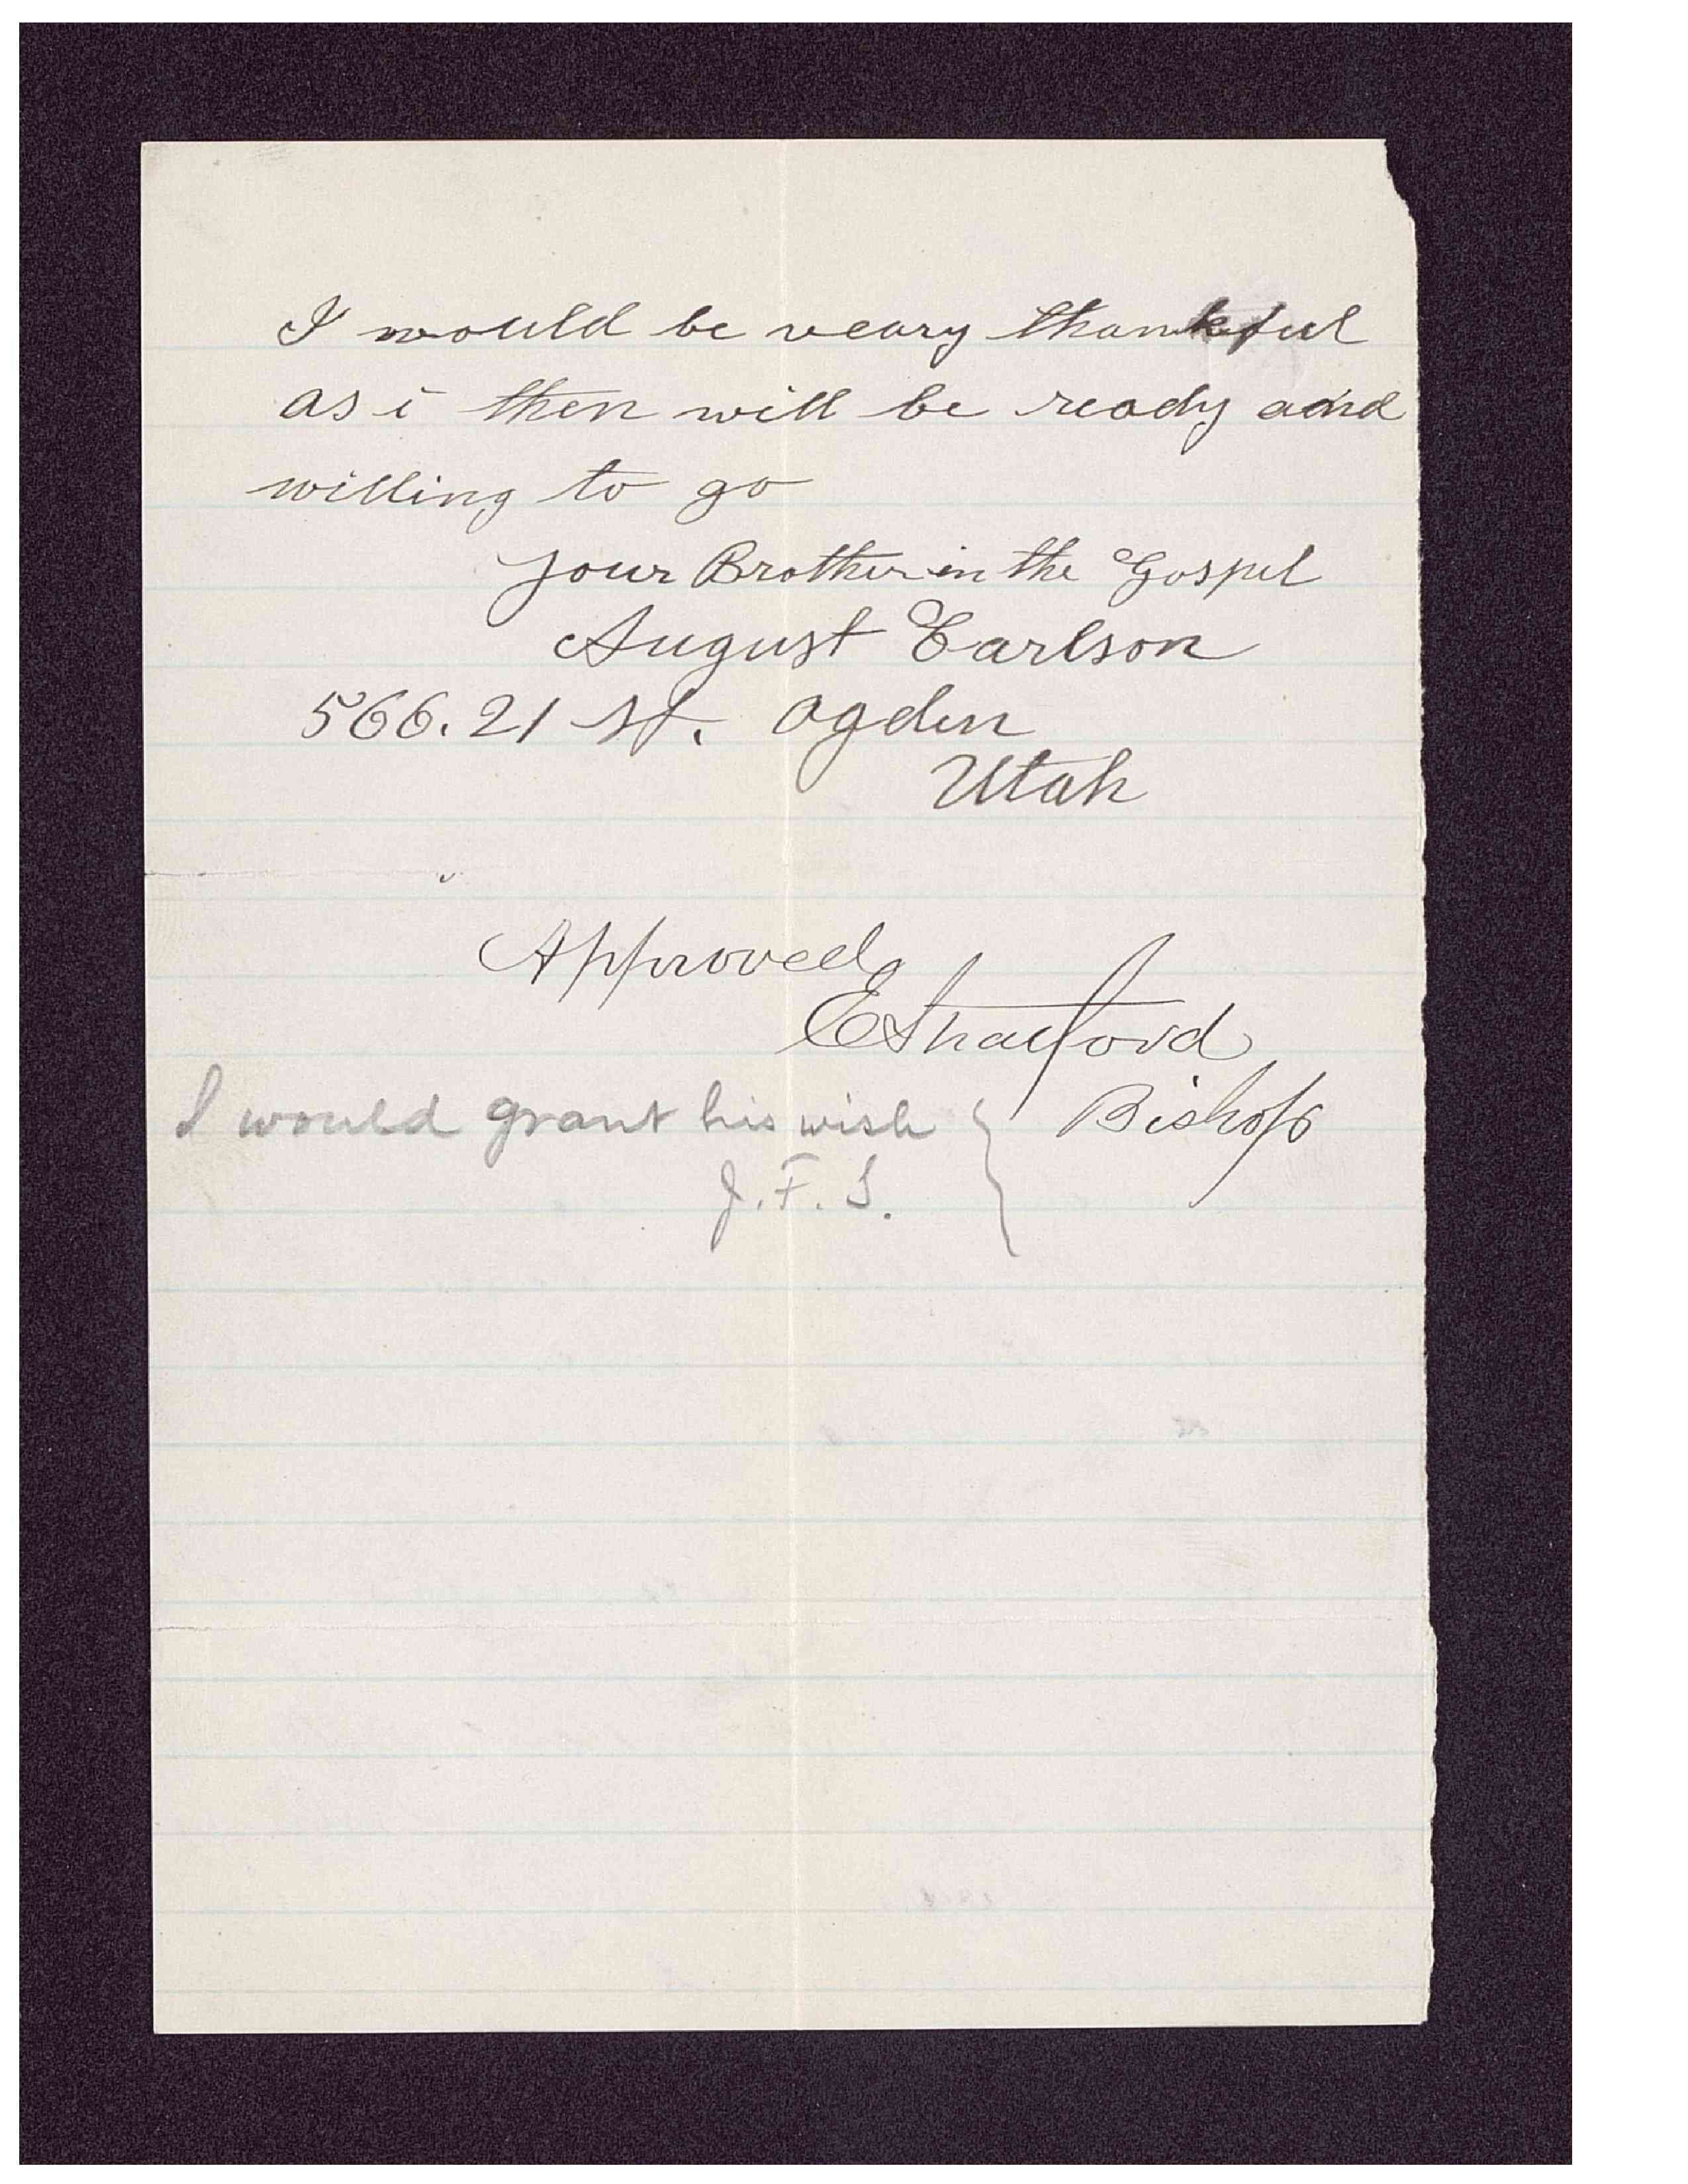 I would be veary thankful
as i then will be ready and
willing to go
your Brother in the Gospel
August Carlson
566. 21 st. Ogden
Utah
Approved
E Stratford
Bishop
I would grant his wish
J. F. S.